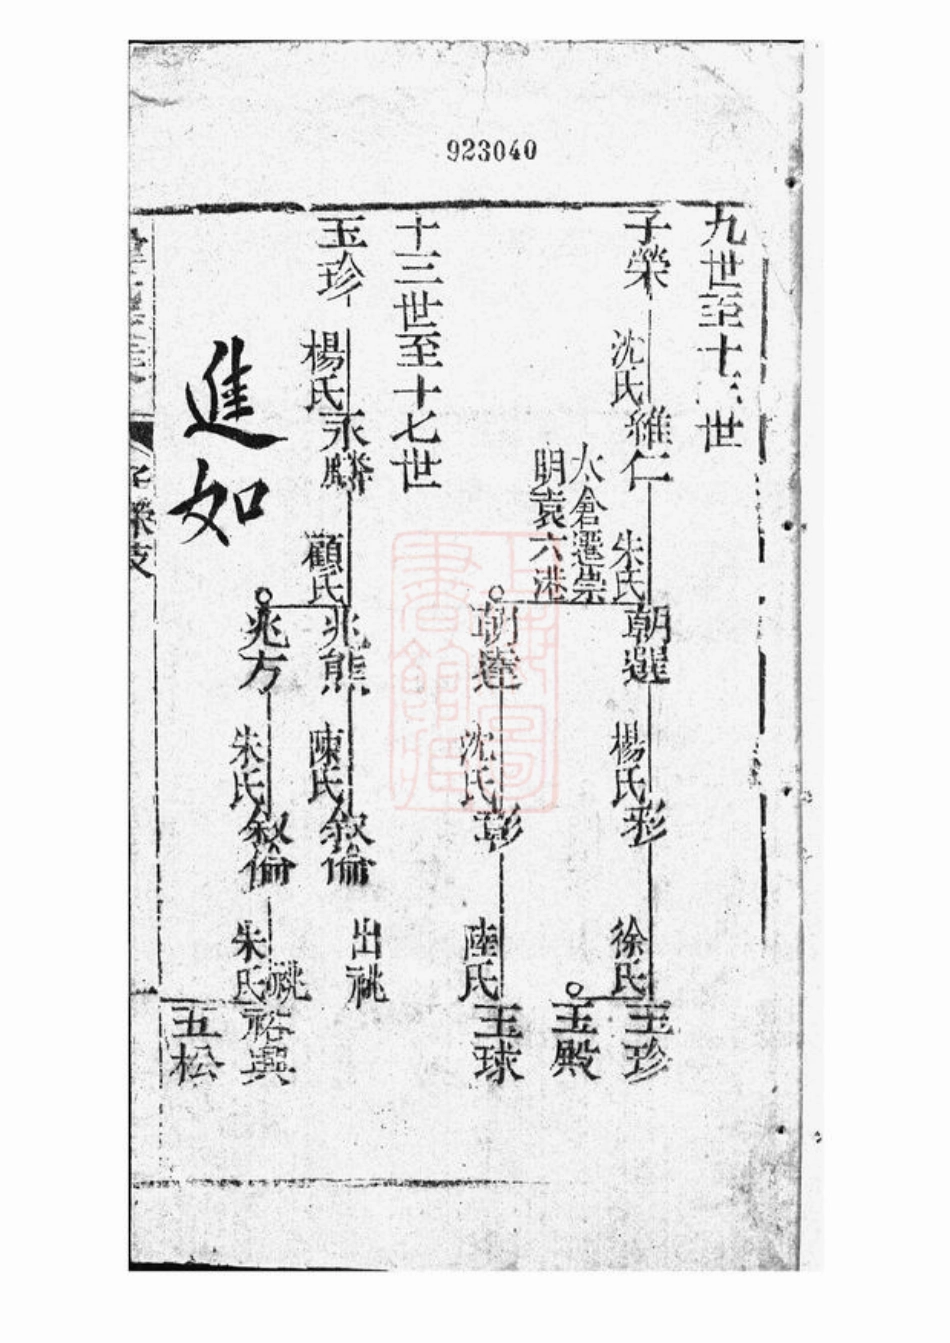 923040
九世至十 世
子榮
沈氏
維仁
朱氏
朝選
楊氏
彩
徐氏
玉珍
玉殿
太倉遷崇
明袁六港
朝達
沈氏
彭
陸氏
玉球
十三世至十七世
玉珍
楊氏
永麟
顧氏
兆熊
陳氏
叙倫
出祧
兆方
朱氏
叙倫
朱氏
祧
裕興
五松
進如
子榮支